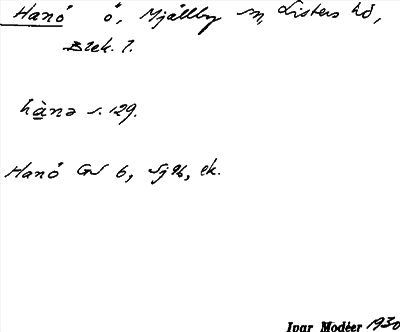 Hanö ö, Mjällby sn, Listers hd,
Blek. l.
hànə s. 129.
Hanö GS 6, Sj 96, ek.
Ivar Modéer 1930